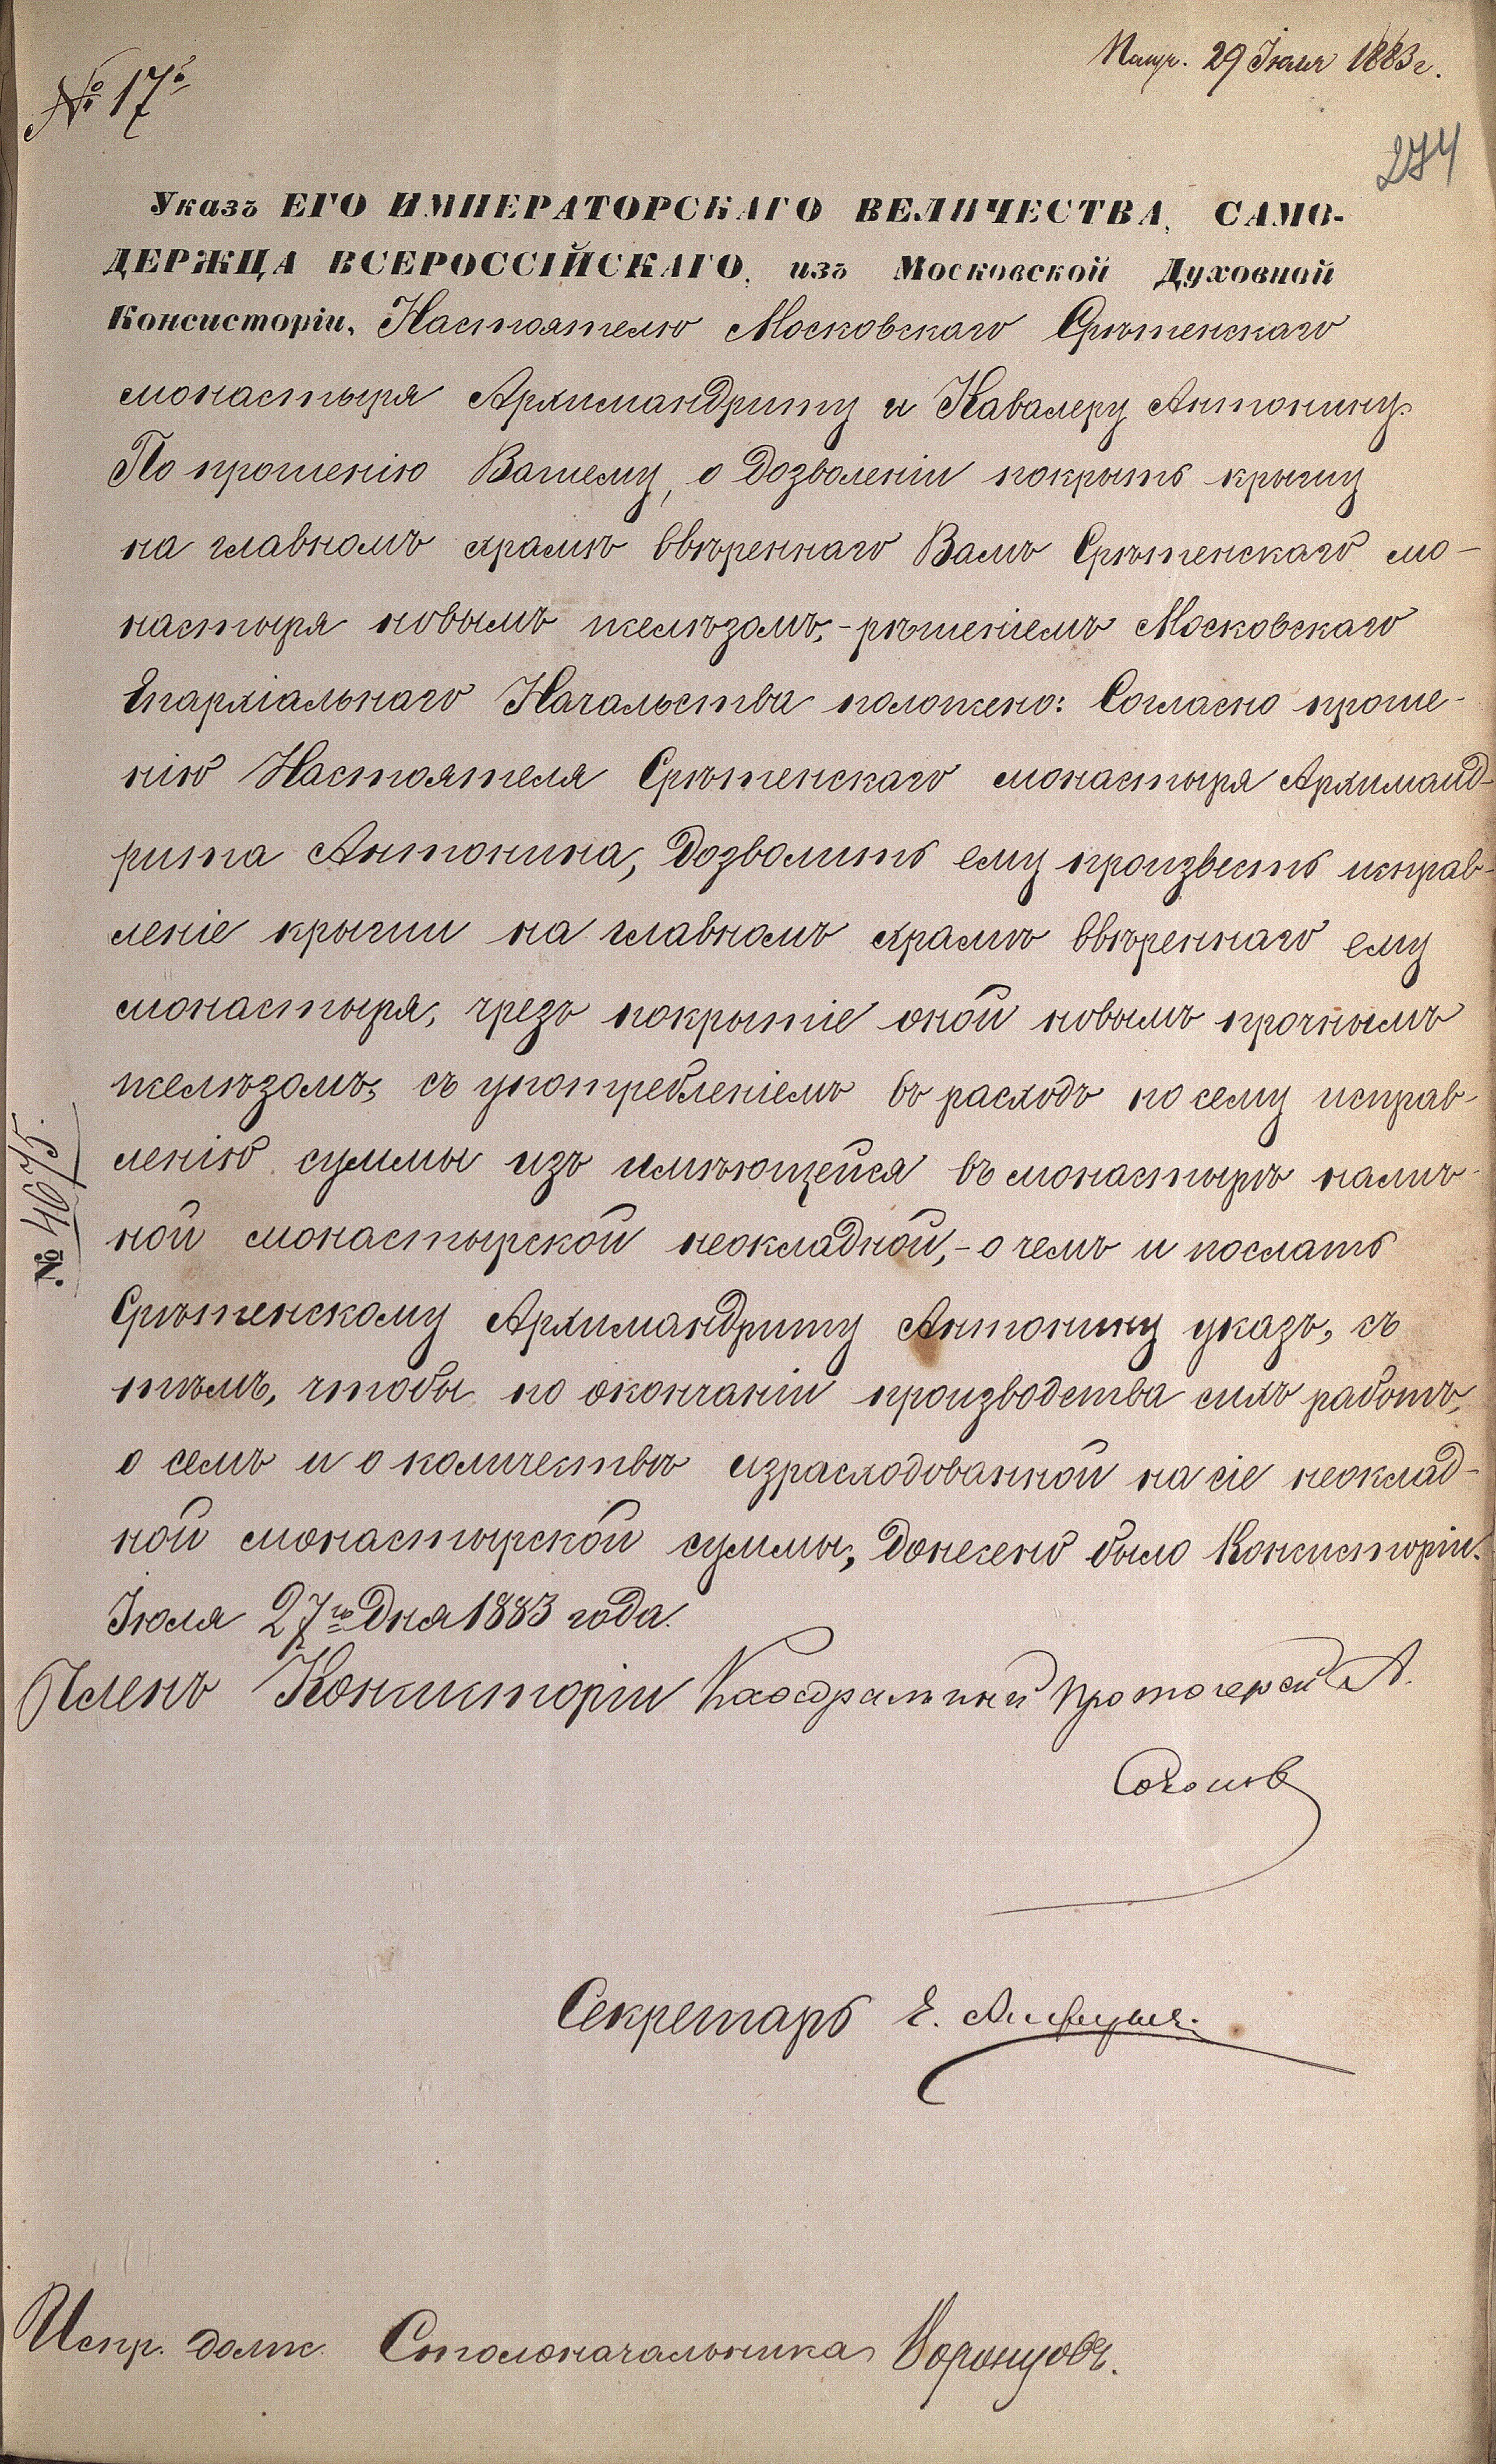 Получ. 29 Іюля 1883 г.
№ 17
274
Указъ ЕГО ИМПЕРАТОРСКАГО ВЕЛИЧЕСТВА, САМО-
ДЕРЖЦА ВСЕРОССІЙСКАГО, изъ Московской Духовной
Консисторіи, Настоятелю Московскаго Срѣтенскаго
монастыря Архимандриту и Кавалеру Антонину.
По прошенію Вашему, о дозволеніи покрыть крышу
на главномъ храмѣ ввѣреннаго Вамъ Срѣтенскаго мо-
настыря новымъ желѣзомъ,-рѣшеніемъ Московскаго
Епархіальнаго Начальства положено: Согласно проше-
нію Настоятеля Срѣтенскаго монастыря Архиманд-
рита Антонина, дозволить ему произвесть исправ-
леніе крыши на главномъ храмѣ ввѣреннаго ему
монастыря, чрезъ покрытіе оной новымъ прочнымъ
желѣзомъ, съ употребленіемъ въ расходъ по сему исправ-
ленію суммы изъ имѣющейся въ монастырѣ налич-
ной монастырской неокладной,-о чемъ и послать
Срѣтенскому Архимандриту Антонину указъ, съ
тѣмъ, чтобы по окончаніи производства сихъ работъ,
о семъ и о количествѣ израсходованной на сіе неоклад-
ной монастырской суммы, донесено было Консисторіи.
Іюля 27го дня 1883 года.
№ 4675.
Членъ Консисторіи Каѳедральный Протоіерей А.
Соколов
Секретарь
Испр. долж. Столоначальника Воронцовъ.